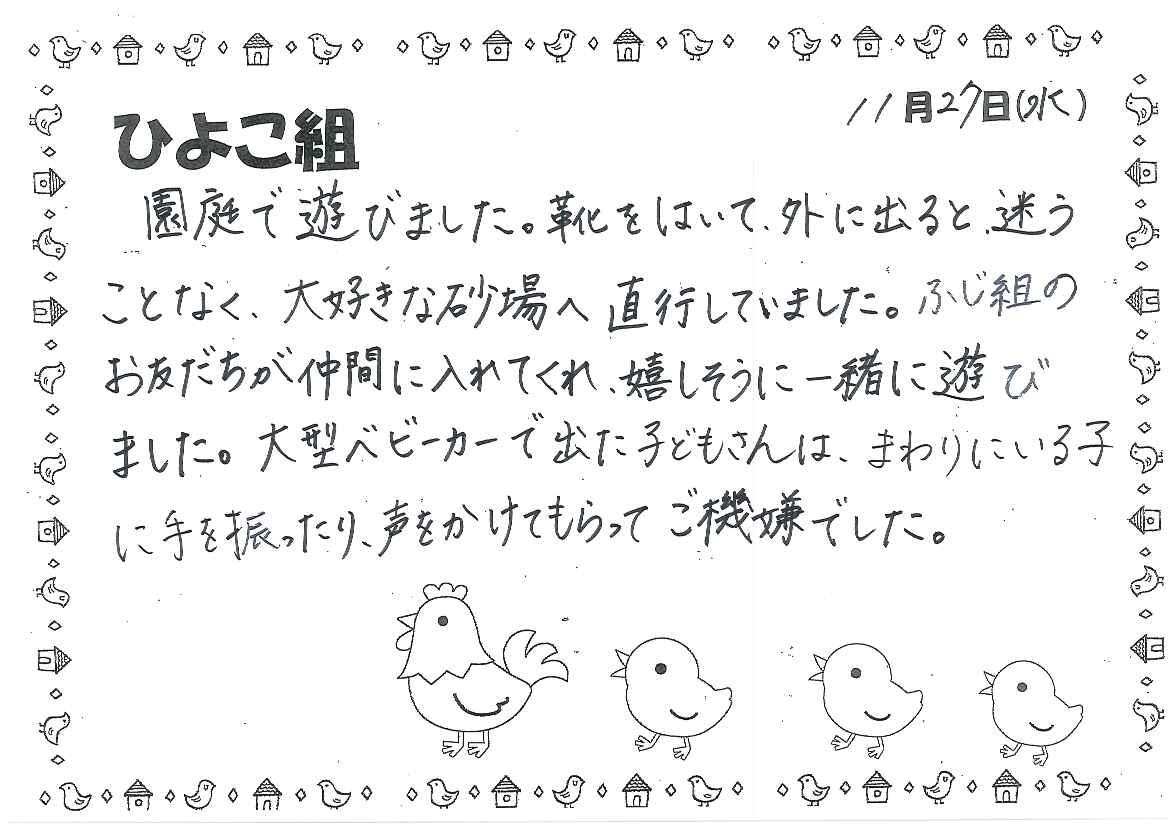 11月27日(水)
ひよこ組
園庭で遊びました。靴をはいて、外に出ると、迷う
ことなく、大好きな砂場へ直行していました。ふじ組の
お友だちが仲間に入れてくれ、嬉しそうに一緒に遊び
ました。大型ベビーカーで出た子どもさんは、まわりにいる子
に手を振ったり、声をかけてもらってご機嫌でした。